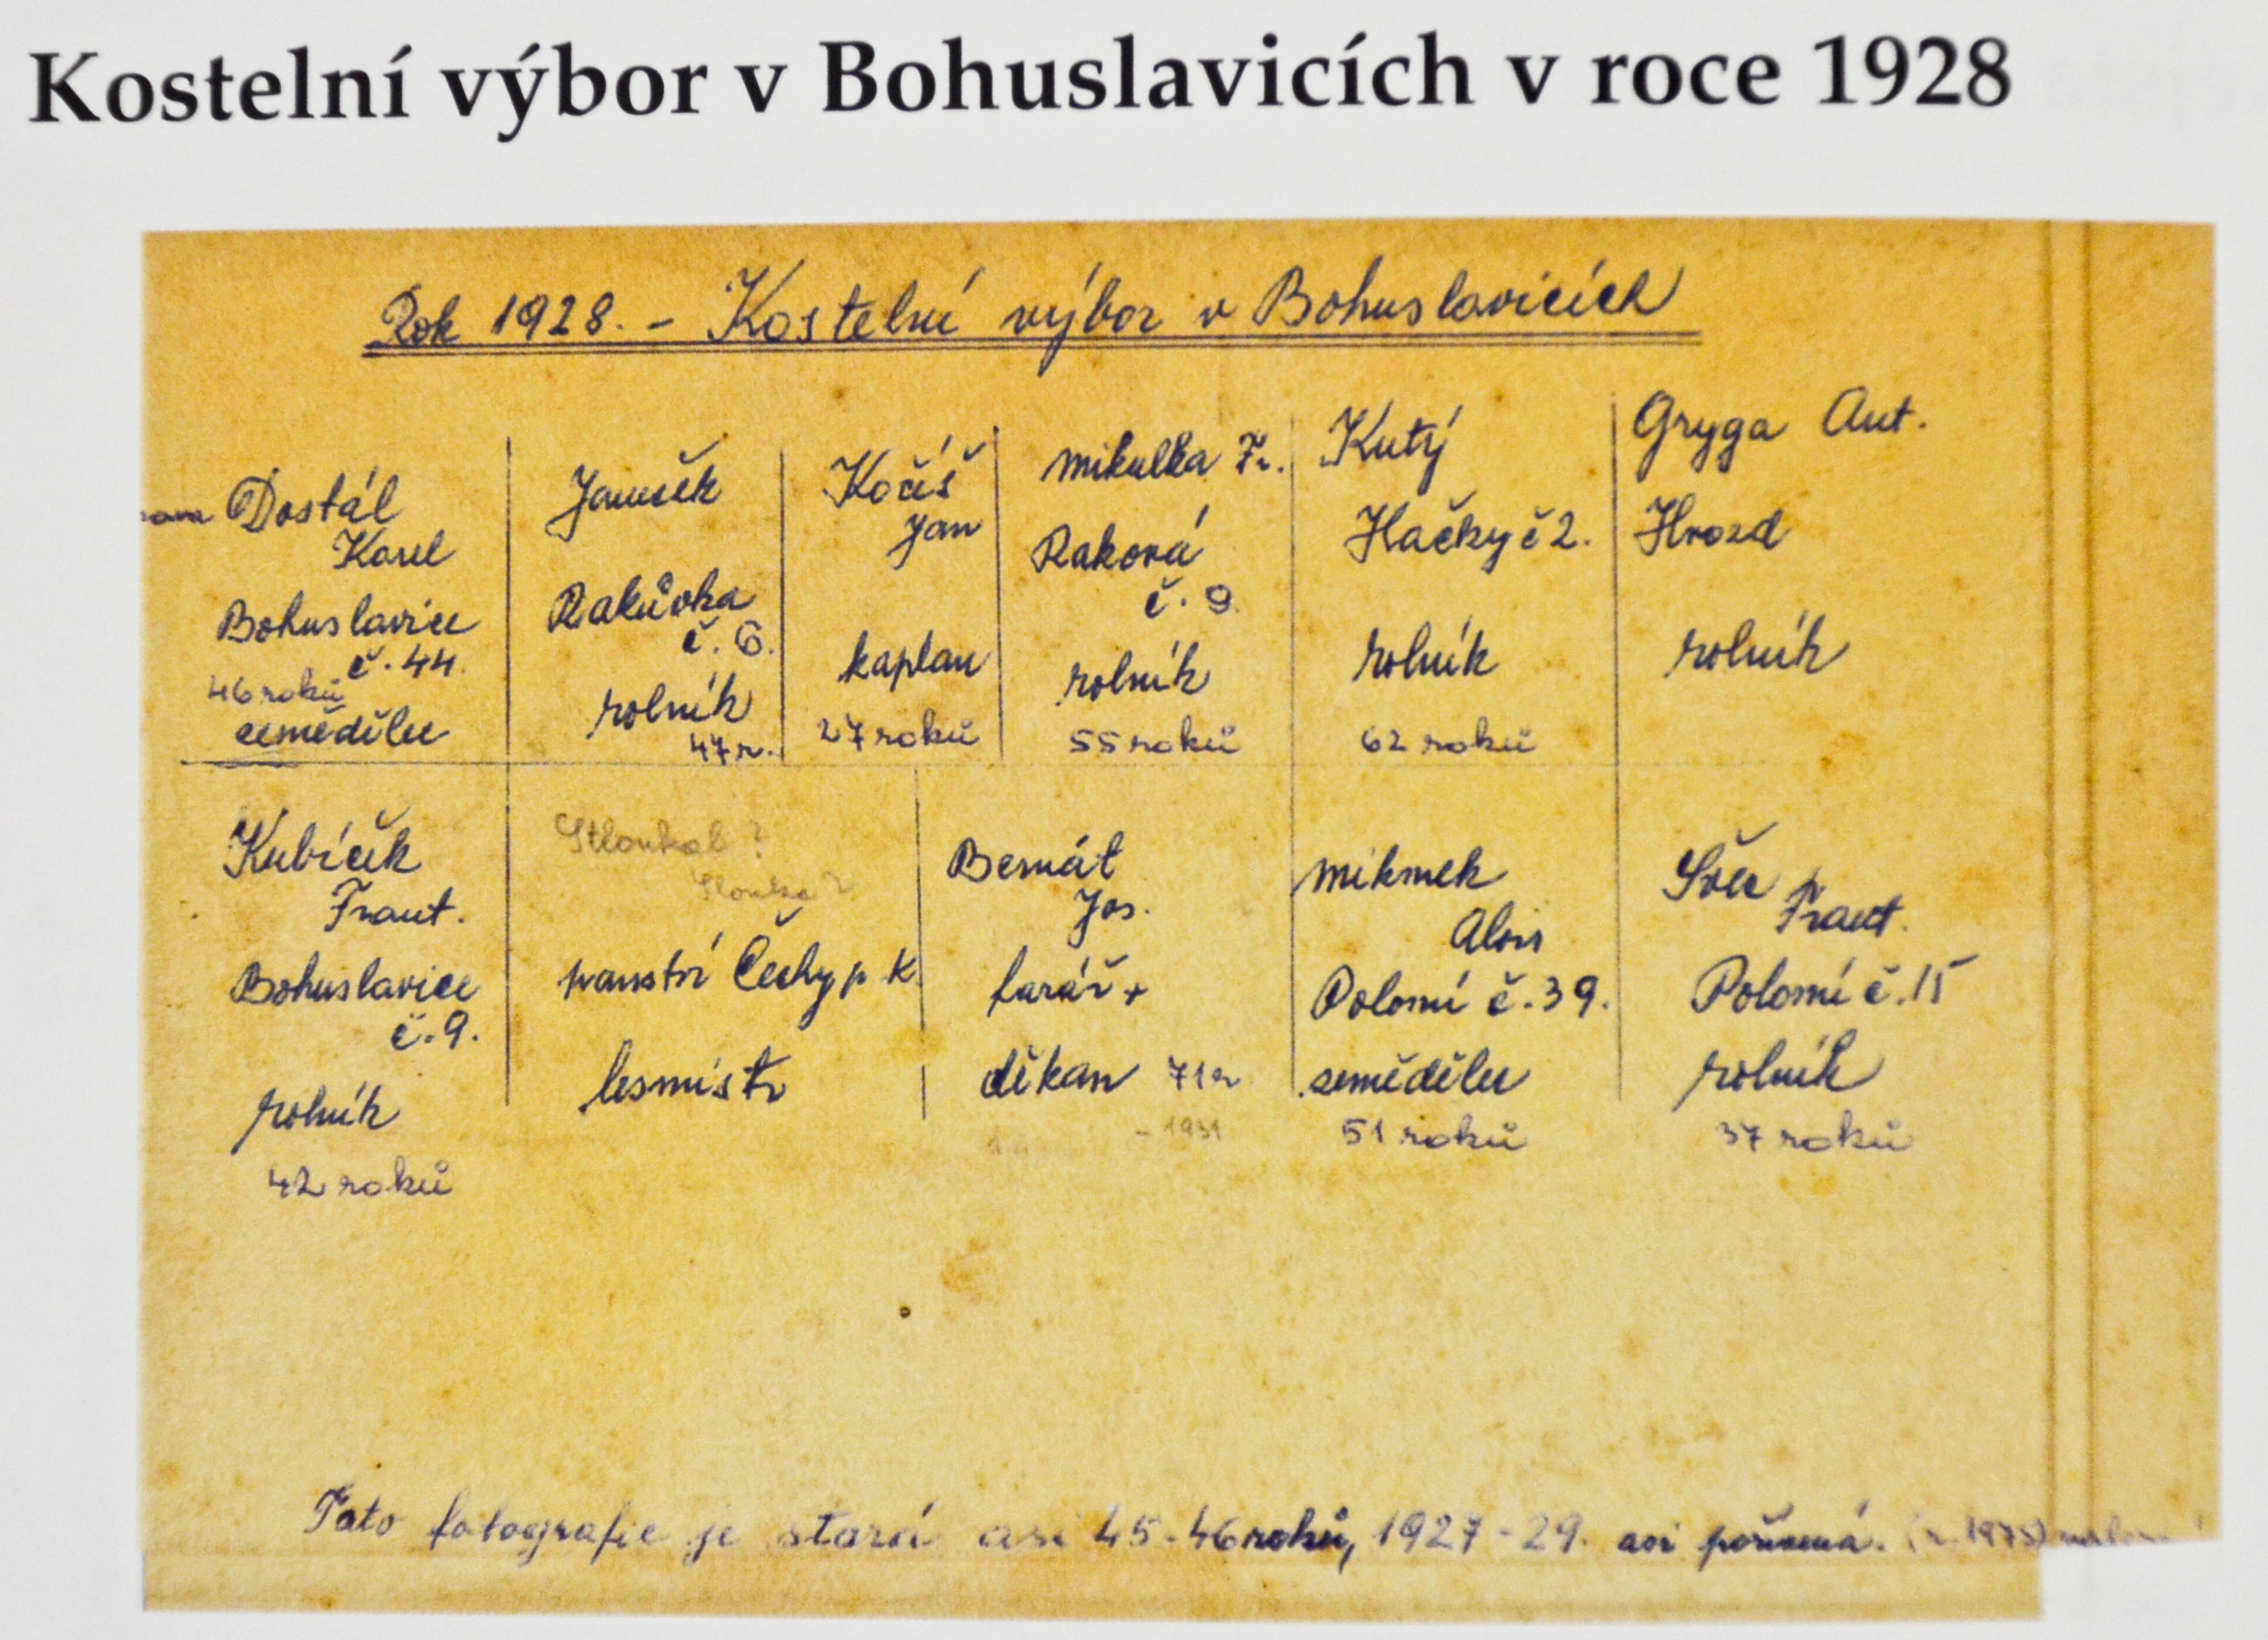 Kostelní výbor v Bohuslavicích v roce 1928
Rok 1928. - Kostelní výbor v Bohuslavicích
Dostál
Karel
Bohuslavice
č. 44.
46 roků
zemědělec
Janušek
Rakůvka
č. 6.
rolník
47 r.
Kočíš
Jan
kaplan
27 roků
Mikulka Fr.
Raková
č. 9.
rolník
55 roků
Kutý
Hačky č 2.
rolník
62 roků
Gryga Ant.
Hvozd
rolník
Kubíček
Frant.
Bohuslavice
č. 9.
rolník
42 roků
Stloukal ?
Slouka ?
panství Čechy p. K.
lesmistr
Bernát
Jos.
farář +
děkan 71 r
- 1931
Mikmek
Alois
Polomí č. 39.
zemědělec
51 roků
Švec
Frant.
Polomí č. 15
rolník
37 roků
Tato fotografie je stará asi 45-46 roků, 1927-29. asi pořízená. (r. 1975)